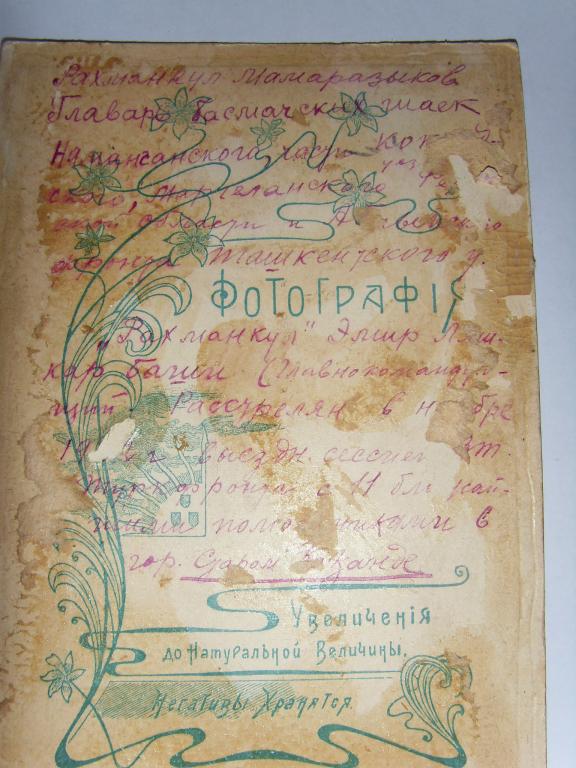 Рахманкул Мамаразыков
Главарь басмаческих шаек
Наманганского части Кок
ского, Маргеланского
ской области и
фронта Ташкентского у.
ФОТОГРАФІЯ
„Рахманкул" Эмир Ляш-
кар баши (Главнокомандую-
щий. Расстрелян в н бре
19 г. выездн. сессией
Туркфронта с 11 бли жай-
шими помощниками в
гор. Старом Коканде
Увеличенія
до Натуральной Величины.
Негативы Хранятся.